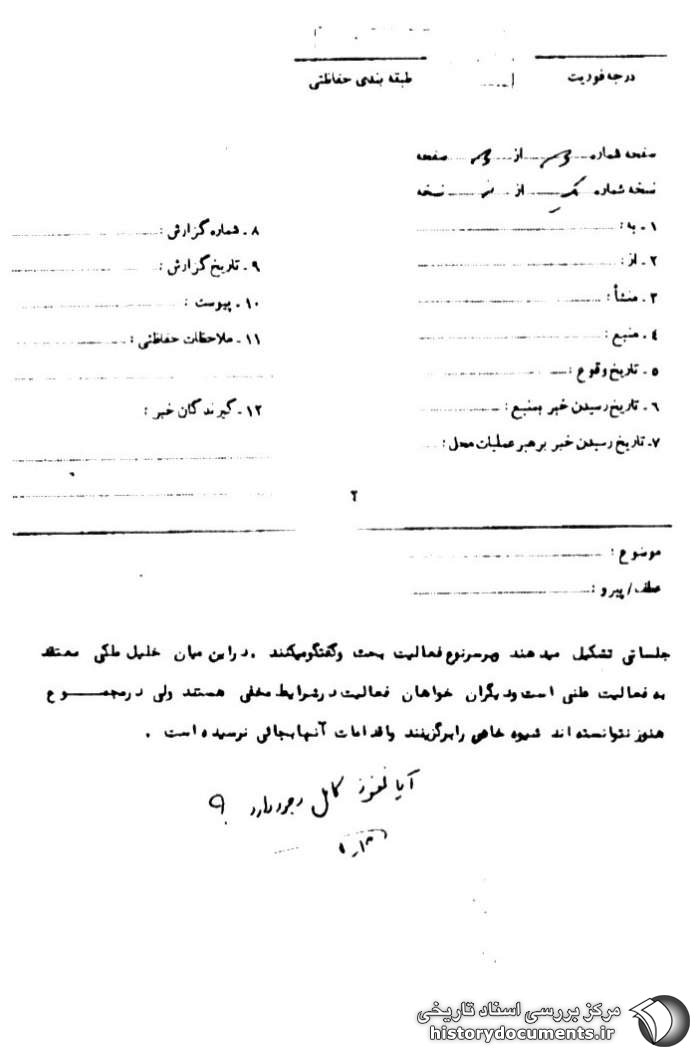 درجه فوریت
طبقه بندی حفاظتی
صفحه شماره از صفحه
نسخه شماره از نسخه
۱ـ به :
۲ـ از :
۳ـ منشأ :
۴ـ منبع :
۵ـ تاریخ وقوع :
۶ـ تاریخ رسیدن خبر بمنبع :
۷ـ تاریخ رسیدن خبر برهبر عملیات محل :
۸ـ شماره گزارش :
۹ـ تاریخ گزارش :
۱۰ـ پیوست :
۱۱ـ ملاحظات حفاظتی :
۱۲ـ گیرندگان خبر :
۲
موضوع :
عطف/پیرو :
جلساتی تشکیل میدهند وبرسرنوع فعالیت بحث وگفتگومیکنند . دراین میان خلیل ملکی معتقد
به فعالیت علنی است ودیگران خواهان فعالیت درشرایط مخفی هستند ولی درمجمـــوع
هنوز نتوانسته اند شیوه خاصی رابرگزینند واقدامات آنهابجائی نرسیده است .
آیا نفوذ کامل وجود دارد ؟
مرکز بررسی اسناد تاریخی
historydocuments.ir